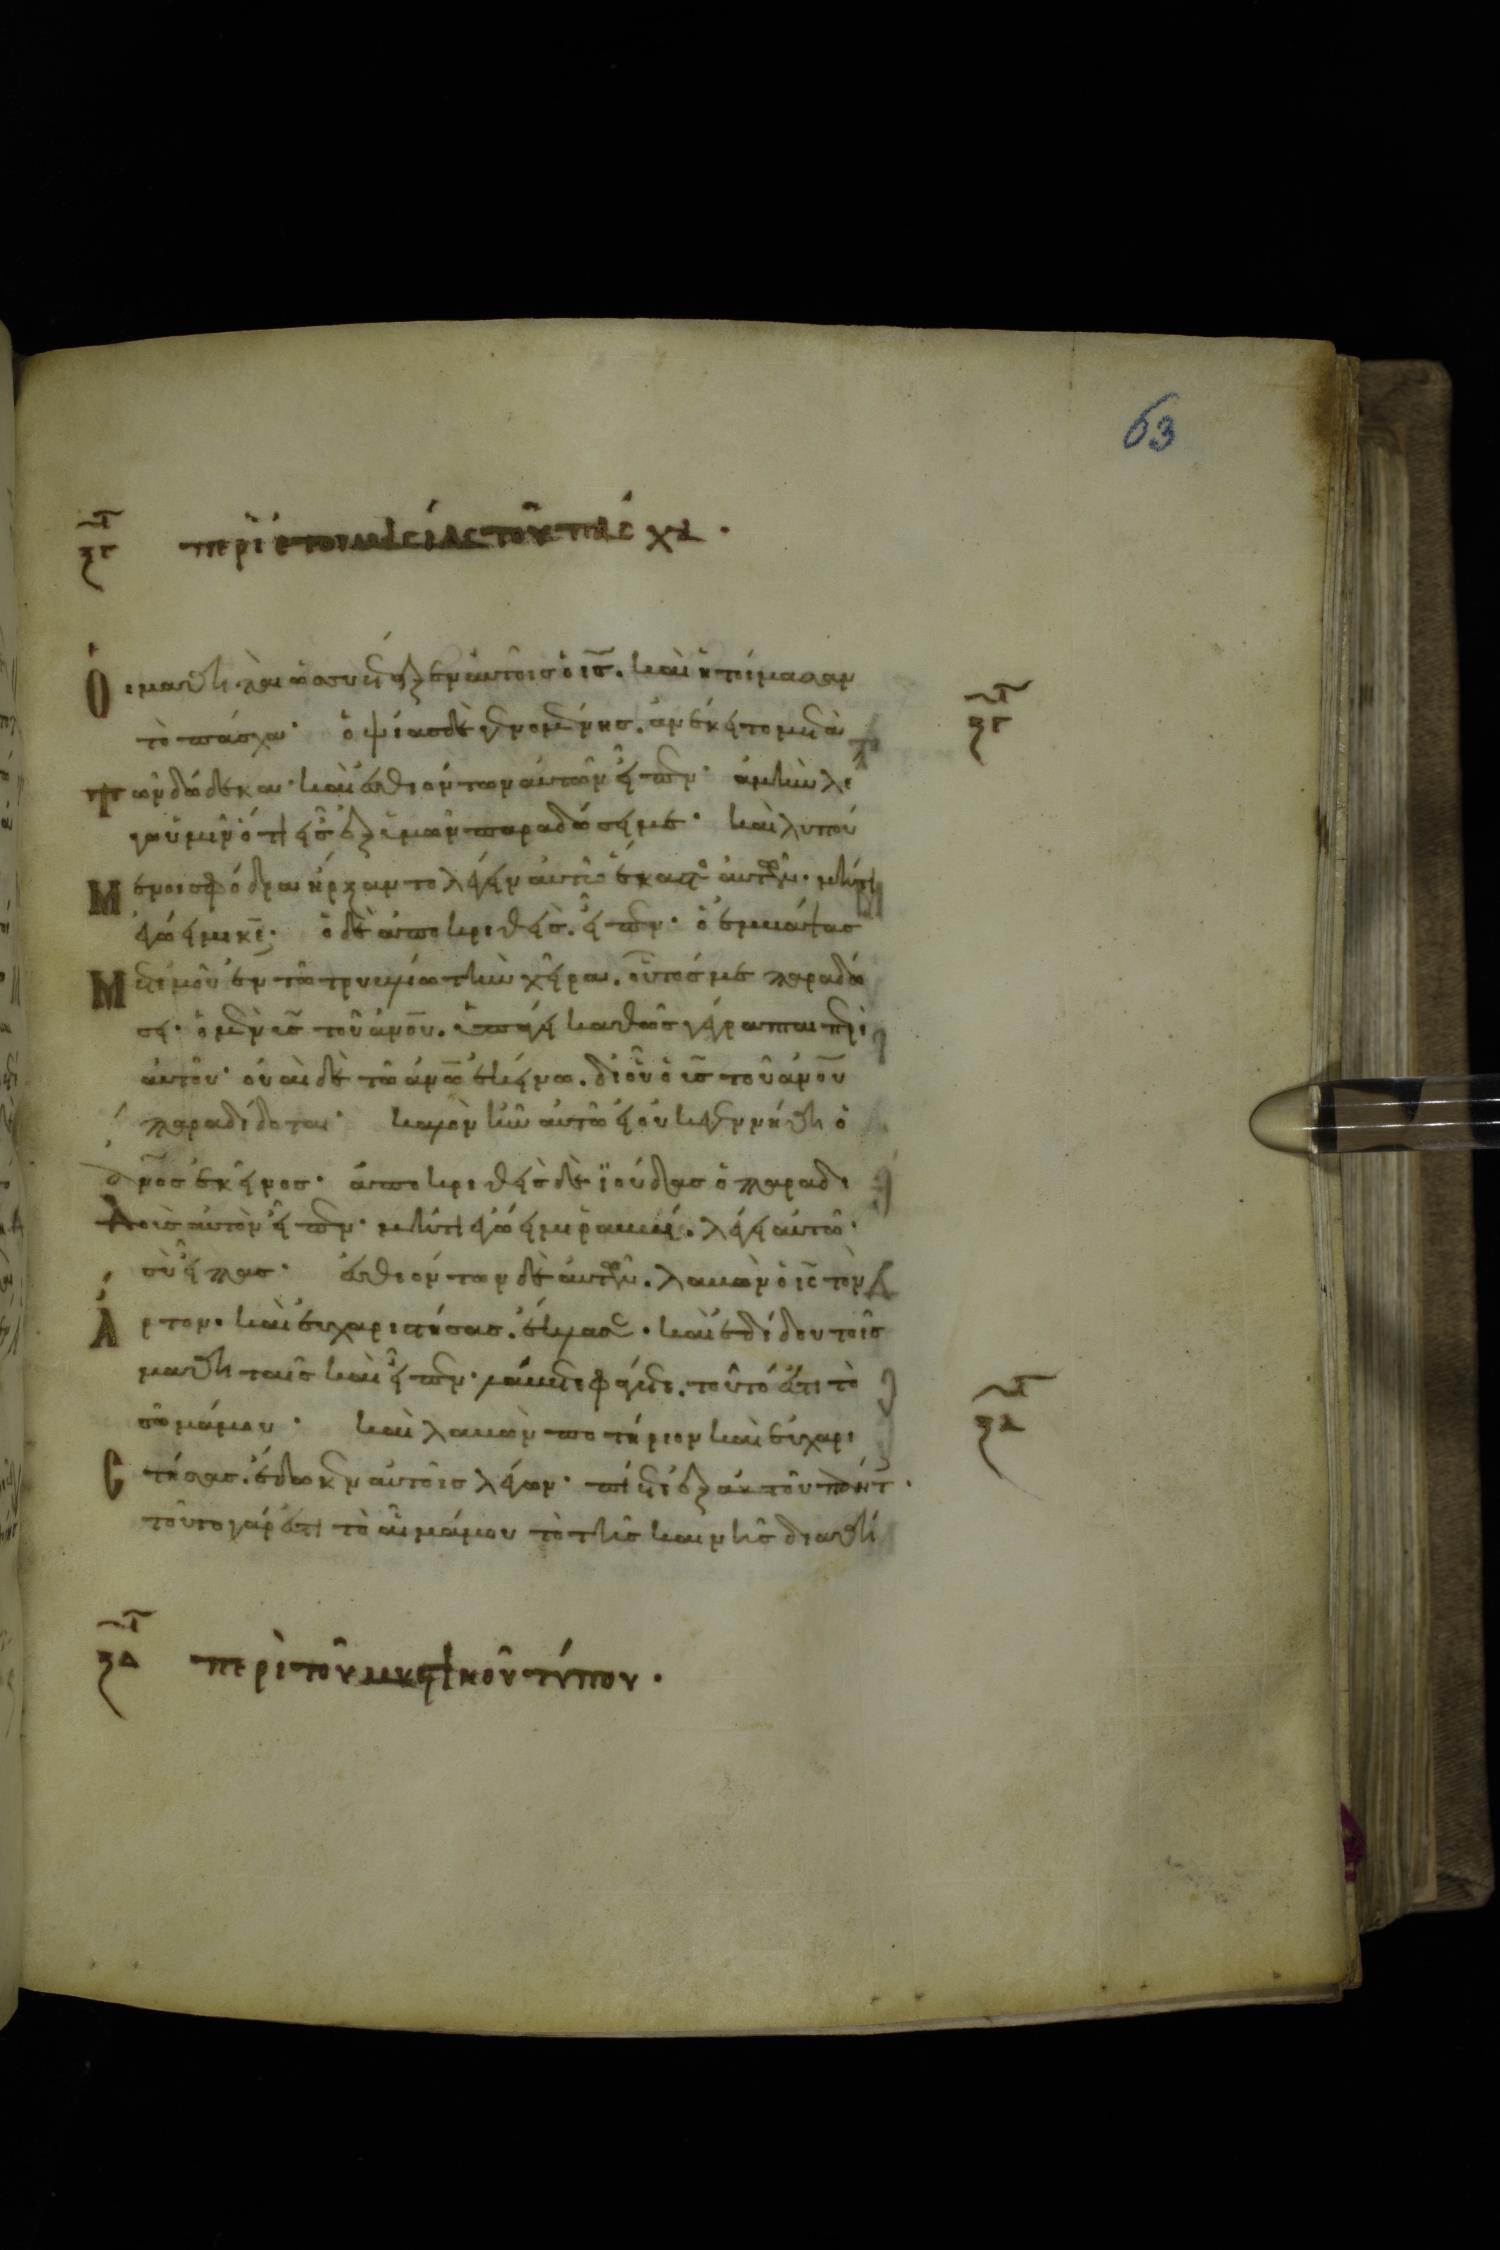 63
ξγ περὶ ἑτοιμασίας τοῦ πάσχα.
Οἱ μαθηταὶ ὡς συνέταξεν αὐτοῖς ὁ ις. καὶ ἡτοίμασαν
ξγ
τὸ πάσχα· ὀψίας δὲ γενομένης. ἀνέκειτο μετὰ
τῶν δώδεκα· καὶ ἐσθιόντων αὐτῶν εἶπεν· ἀμὴν λέ
γω ὑμῖν ὅτι εἷς ἐξ ὑμῶν παραδώσει με· καὶ λυπού
μενοι σφόδρα ἤρξαντο λέγειν αὐτῶ ἕκαστος αὐτῶν· μήτι
ἐγώ εἰμι κε· ὁ δὲ ἀποκριθεὶς. εἶπεν· ὁ ἐμβάψας
μετ ἐμοῦ ἐν τῶ τρυβλίω τὴν χεῖρα. οὗτός με παραδώ
σει· ὁ μὲν υς τοῦ ανου. ὑπάγει καθὼς γέγραπται περὶ
αὐτοῦ· οὐαὶ δὲ τῶ ανω ἐκείνω. δι οὗ ὁ υς τοῦ ανου
παραδίδοται· καλὸν ἦν αὐτῶ εἰ οὐκ ἐγεννήθη ὁ
ανος ἐκεῖνος· ἀποκριθεὶς δὲ ἰούδας ὁ παραδι
δοὺς αὐτὸν εἶπεν· μήτι ἐγώ εἰμι ῥαββί. λέγει αὐτῶ·
σὺ εἶπας· ἐσθιόντων δὲ αὐτῶν. λαβὼν ὁ ις τὸν
ἄρτον· καὶ εὐχαριστήσας. ἔκλασε· καὶ ἐδίδου τοῖς
μαθηταῖς καὶ εἶπεν· λάβετε φάγετε. τοῦτό ἐστι τὸ
ξδ
σῶμά μου· καὶ λαβὼν ποτήριον καὶ εὐχαρι
στήσας. ἔδωκεν αὐτοῖς λέγων· πίετε ἐξ αὐτοῦ πάντ·
τοῦτο γάρ ἐστι τὸ αἷμά μου τὸ τῆς καινῆς διαθή
ξδ περὶ τοῦ μυστικοῦ τύπου.